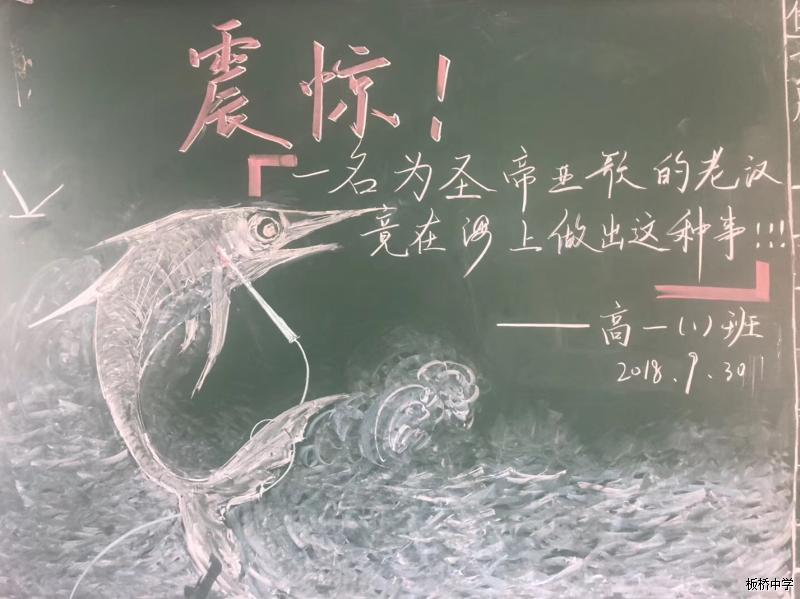 震惊!
一名为圣帝亚歌的老汉
竟在海上做出这种事!!!
——高一(1)班
2018.9.30
板桥中学